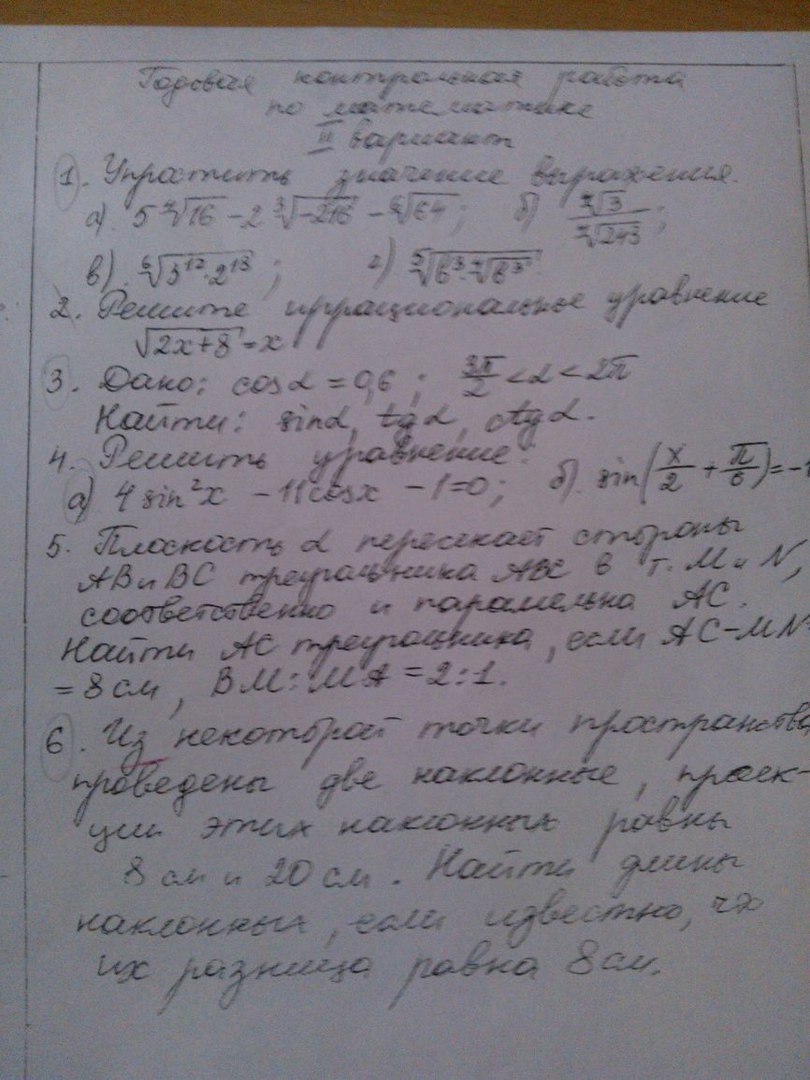 Годовая контрольная работа
по математике
III вариант
1. Упростить значение выражения.
а). 5∜16 - 2∛-216 - ⁶√64; б) ∜3/∜243;
в). ⁶√3¹²·2¹³; г) ⁵√b³·∜b³
2. Решите иррациональное уравнение
√2x+8 = x
3. Дано: cosα = 0,6; 3π/2 < α < 2π
Найти: sinα, tgα, ctgα.
4. Решить уравнение:
а) 4 sin²x - 11cosx - 1=0; б). sin(x/2 + π/6) = -1
5. Плоскость α пересекает стороны
AB и BC треугольника ABC в т. M и N,
соответственно и параллельна AC.
Найти AC треугольника, если AC-MN=
= 8 см, BM:MA = 2:1.
6. Из некоторой точки пространства
проведены две наклонные, проек-
ции этих наклонных равны
8 см и 20 см. Найти длины
наклонных, если известно, что
их разница равна 8 см.